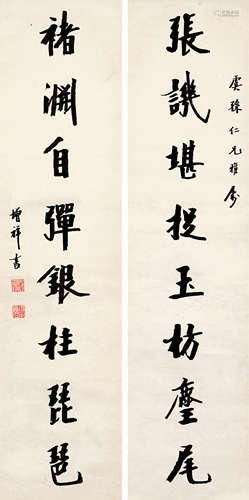 張譏堪捉玉柄麈尾
虞孫仁兄雅屬
褚淵自彈銀柱琵琶
增祥書